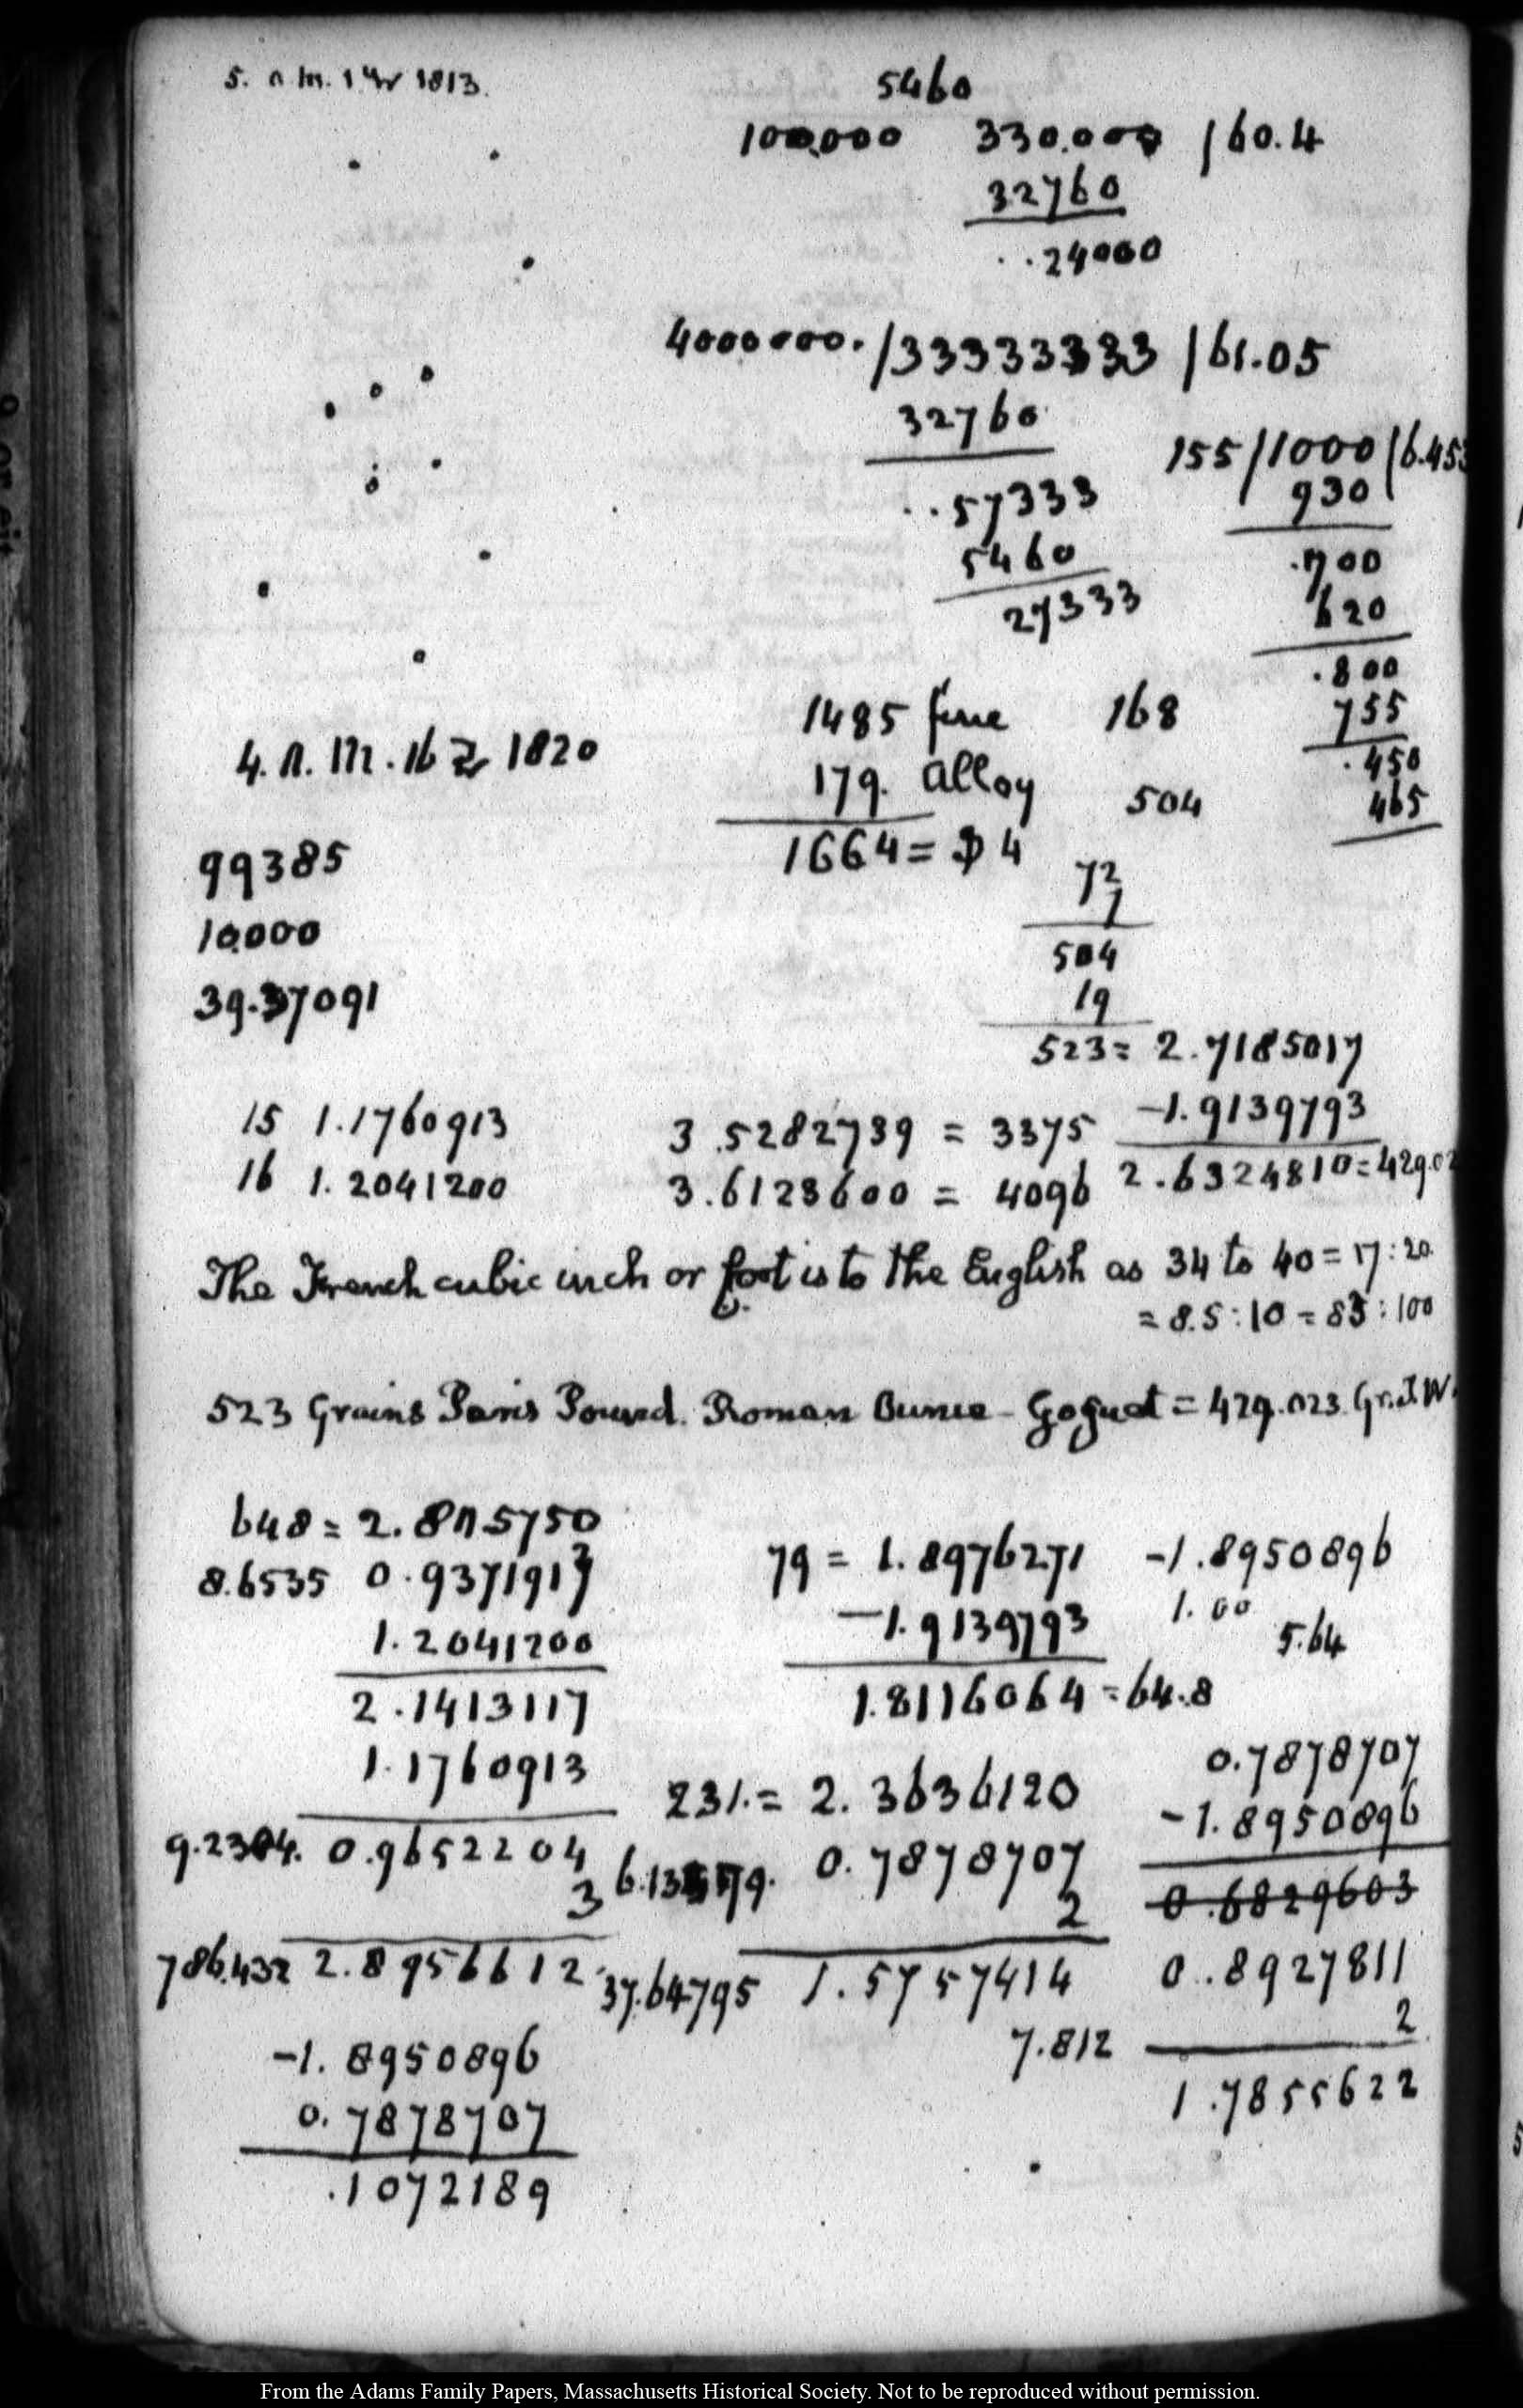 5. a m. 1 1813.
5460
100,000 330.000 /60.4
32760
. . 24000
4000000. /33333333 /61.05
32760
. . 57333
5460
27333
155 /1000 /6.453
930
.700
620
.800
755
.450
465
1485 fine 168
179. alloy 504
1664 = $ 4
4. A. M. 16 1820
99385
10,000
39.37091
72
7
504
19
523 = 2.7185017
-1.9139793
2.6324810 = 429.02
15 1.1760913
16 1.2041200
3.5282739 = 3375
3.6123600 = 4096
The French cubic inch or foot is to the English as 34 to 40 = 17:20.
= 8.5:10 = 85:100
523 Grains Paris Pound. Roman Ounce - Goguet = 429.023 Gr. T. W.
648 = 2.8115750
8.6535 0.9371917
1.2041200
2.1413117
1.1760913
9.2304. 0.9652204
3
786.432 2.8956612
-1.8950896
0.7878707
.1072189
79 = 1.8976271
-1.9139793
1.8116064 = 64.8
-1.8950896
1.00
5.64
231. = 2.3636120
0. 7878707
2
37.64795 1.5757414
0.7878707
-1.8950896
0.6829603
0.8927811
2
7.812
1.7855622
From the Adams Family Papers, Massachusetts Historical Society. Not to be reproduced without permission.